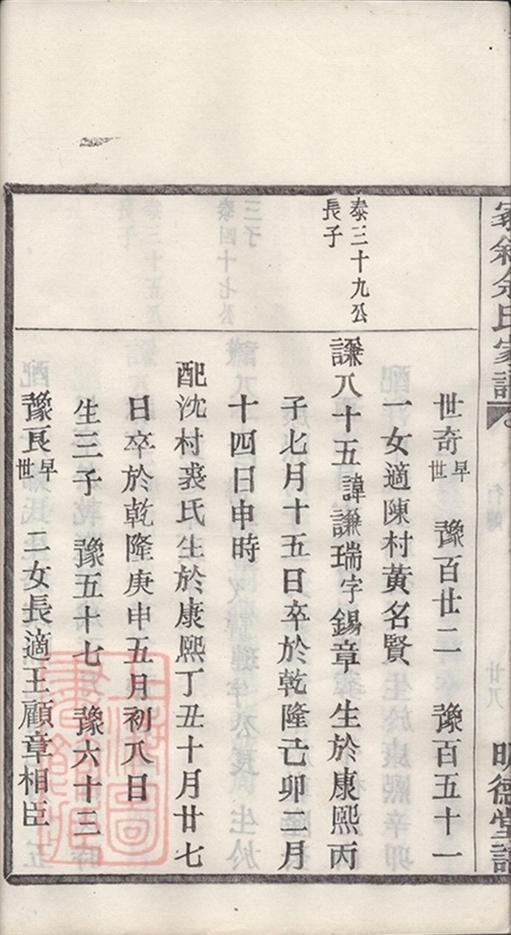 余氏家譜
明德堂譜
世奇早世 豫百廿二 豫百五十一
一女適陳村黃名賢
泰三十九公
長子
謙八十五諱謙瑞字錫章生於康熙丙
子七月十五日卒於乾隆己卯二月
十四日申時
配沈村裘氏生於康熙丁丑十月廿七
日卒於乾隆庚申五月初八日
生三子 豫五十七 豫六十三
豫良早世 二女長適王顧章相臣